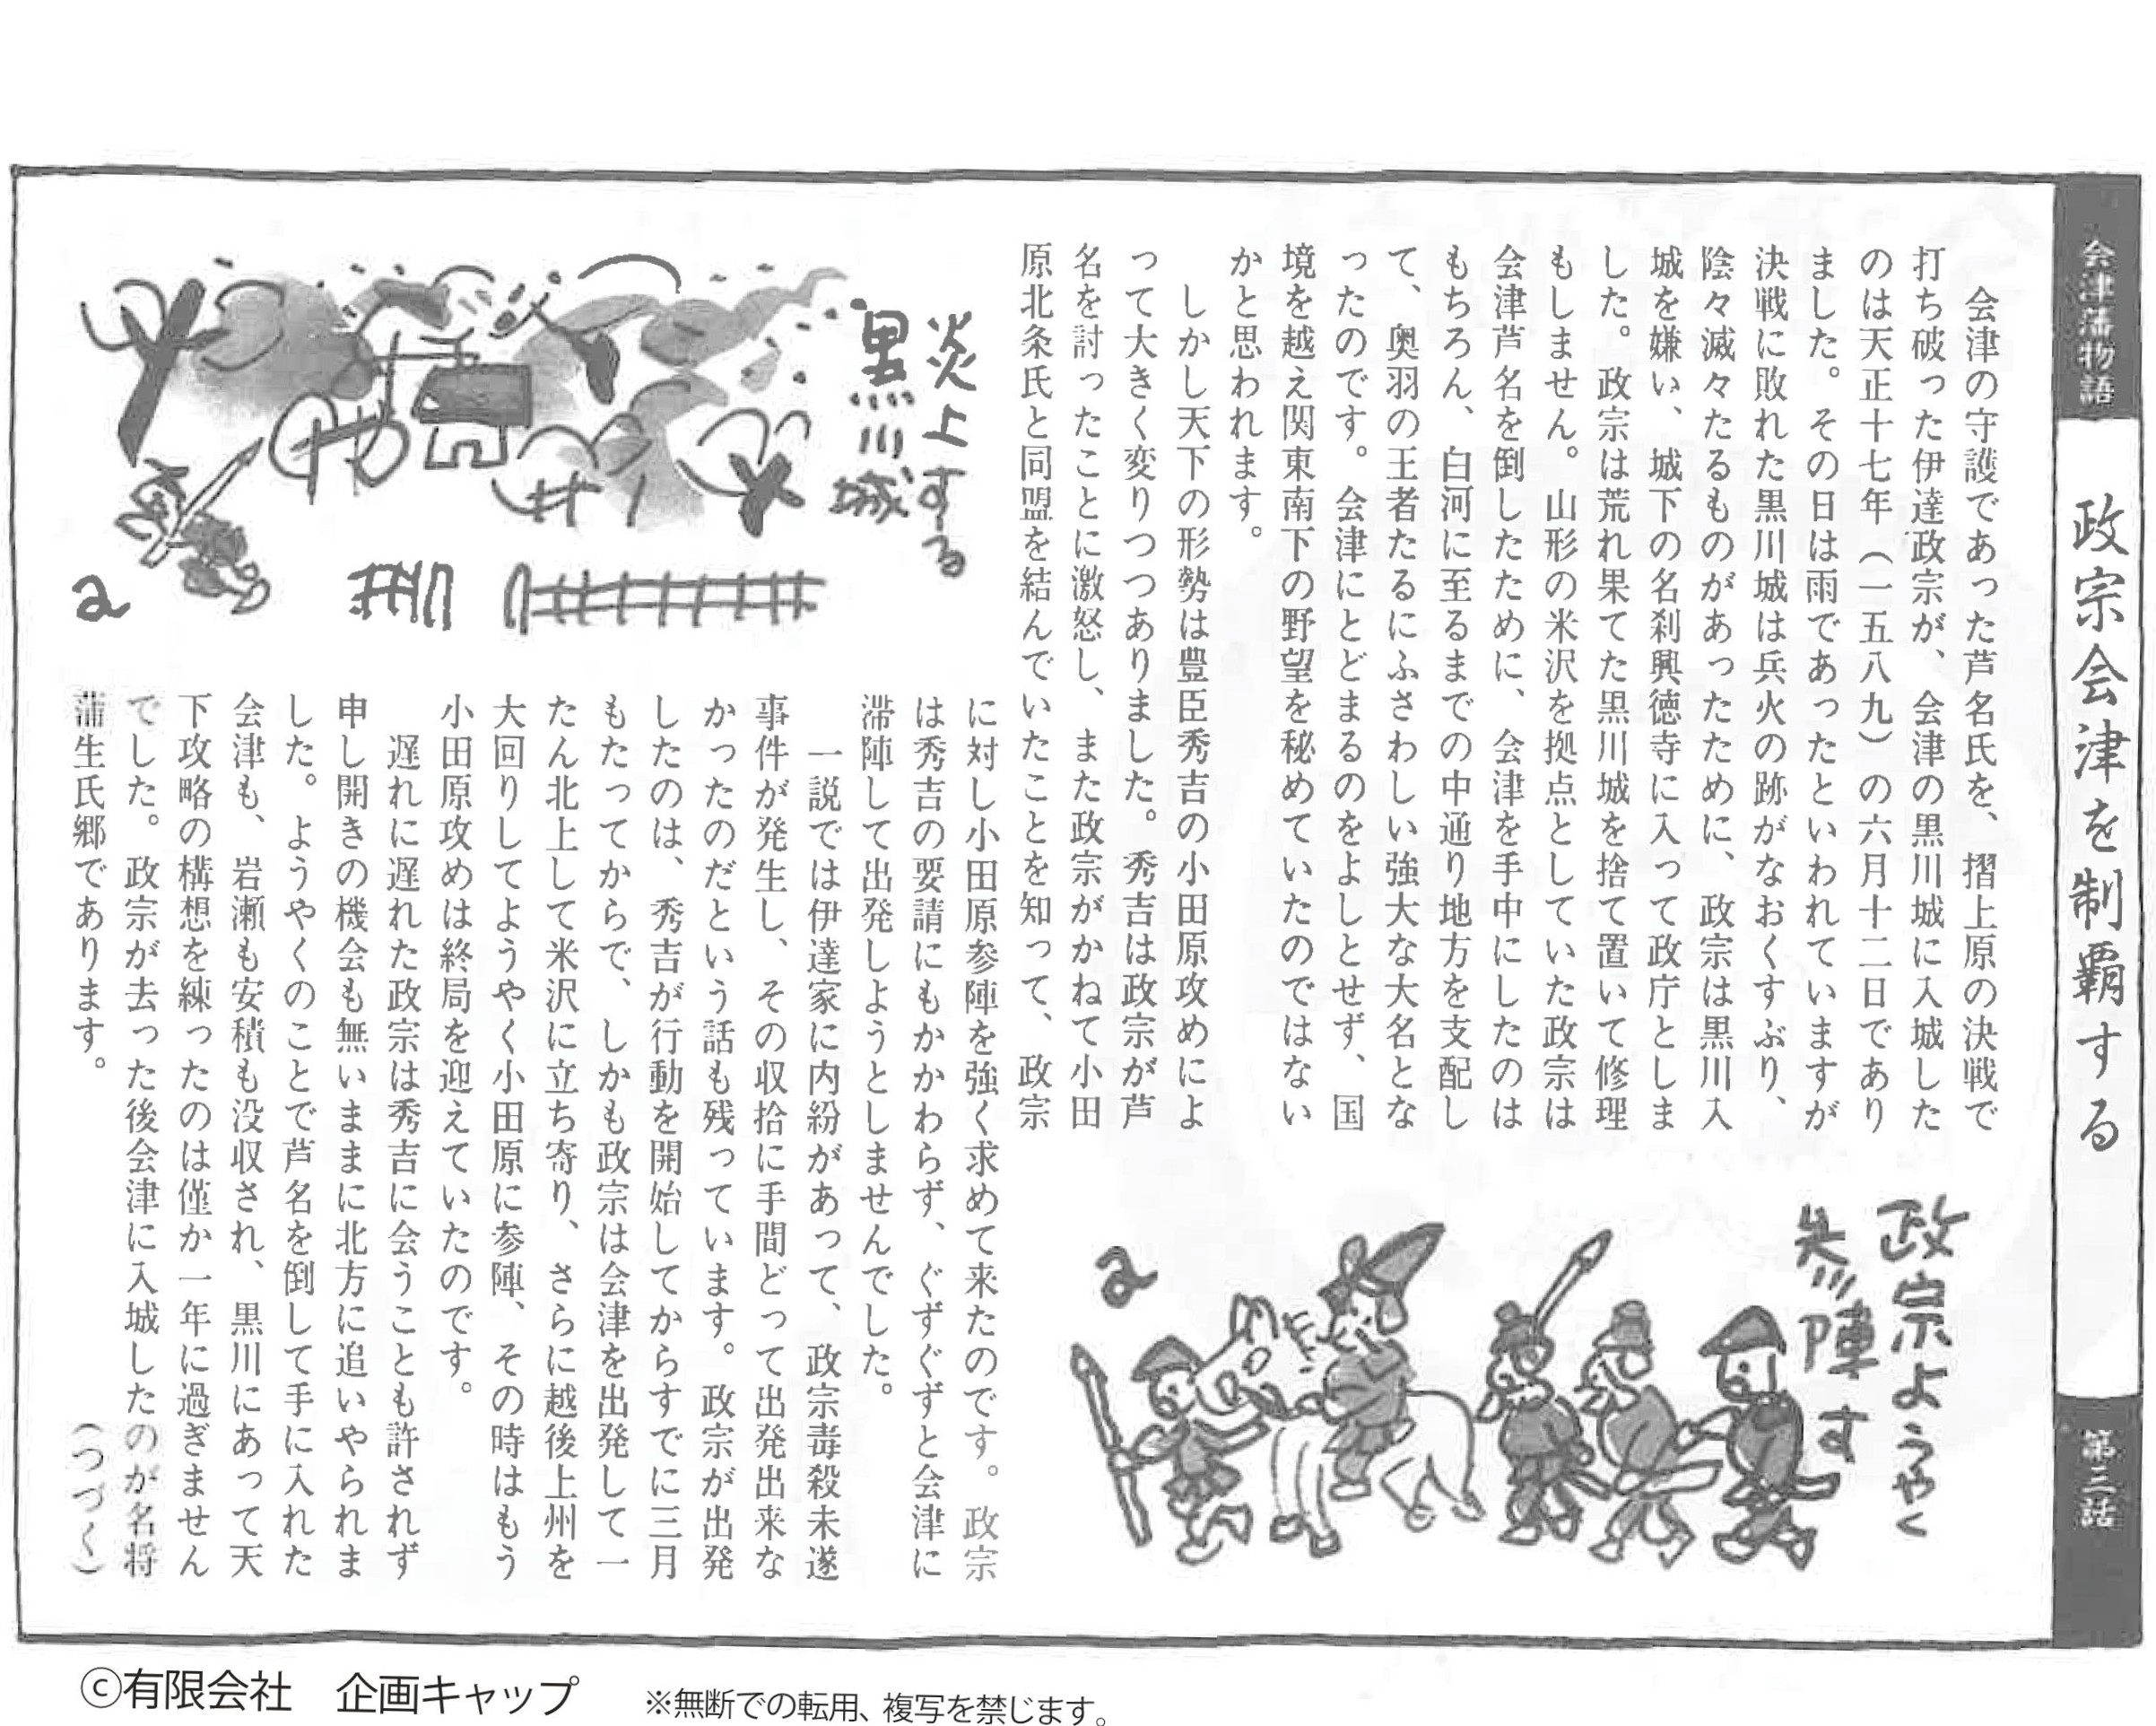 会津藩物語
政宗会津を制覇する
第三話
会津の守護であった芦名氏を、摺上原の決戦で
打ち破った伊達政宗が、会津の黒川城に入城した
のは天正十七年（一五八九）の六月十二日であり
ました。その日は雨であったといわれていますが
決戦に敗れた黒川城は兵火の跡がなおくすぶり、
陰々滅々たるものがあったために、政宗は黒川入
城を嫌い、城下の名刹興徳寺に入って政庁としま
した。政宗は荒れ果てた黒川城を捨て置いて修理
もしません。山形の米沢を拠点としていた政宗は
会津芦名を倒したために、会津を手中にしたのは
もちろん、白河に至るまでの中通り地方を支配し
て、奥羽の王者たるにふさわしい強大な大名とな
ったのです。会津にとどまるのをよしとせず、国
境を越え関東南下の野望を秘めていたのではない
かと思われます。
しかし天下の形勢は豊臣秀吉の小田原攻めによ
って大きく変りつつありました。秀吉は政宗が芦
名を討ったことに激怒し、また政宗がかねて小田
原北条氏と同盟を結んでいたことを知って、政宗
に対し小田原参陣を強く求めて来たのです。政宗
は秀吉の要請にもかかわらず、ぐずぐずと会津に
滞陣して出発しようとしませんでした。
一説では伊達家に内紛があって、政宗毒殺未遂
事件が発生し、その収拾に手間どって出発出来な
かったのだという話も残っています。政宗が出発
したのは、秀吉が行動を開始してからすでに三月
もたってからで、しかも政宗は会津を出発して一
たん北上して米沢に立ち寄り、さらに越後上州を
大回りしてようやく小田原に参陣、その時はもう
小田原攻めは終局を迎えていたのです。
遅れに遅れた政宗は秀吉に会うことも許されず
申し開きの機会も無いままに北方に追いやられま
した。ようやくのことで芦名を倒して手に入れた
会津も、岩瀬も安積も没収され、黒川にあって天
下攻略の構想を練ったのは僅か一年に過ぎません
でした。政宗が去った後会津に入城したのが名将
蒲生氏郷であります。
（つづく）
炎上する
黒川城
a
政宗ようやく
参陣す
a
©有限会社　企画キャップ
※無断での転用、複写を禁じます。